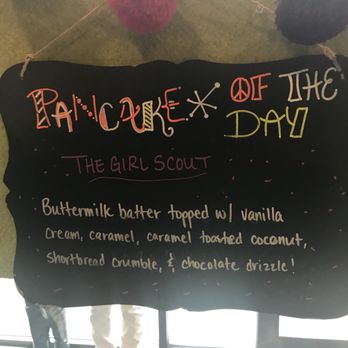 PANCAKE OF THE
DAY
THE GIRL SCOUT
Buttermilk batter topped w/ vanilla
cream, caramel, caramel toasted coconut,
shortbread crumble, & chocolate drizzle!